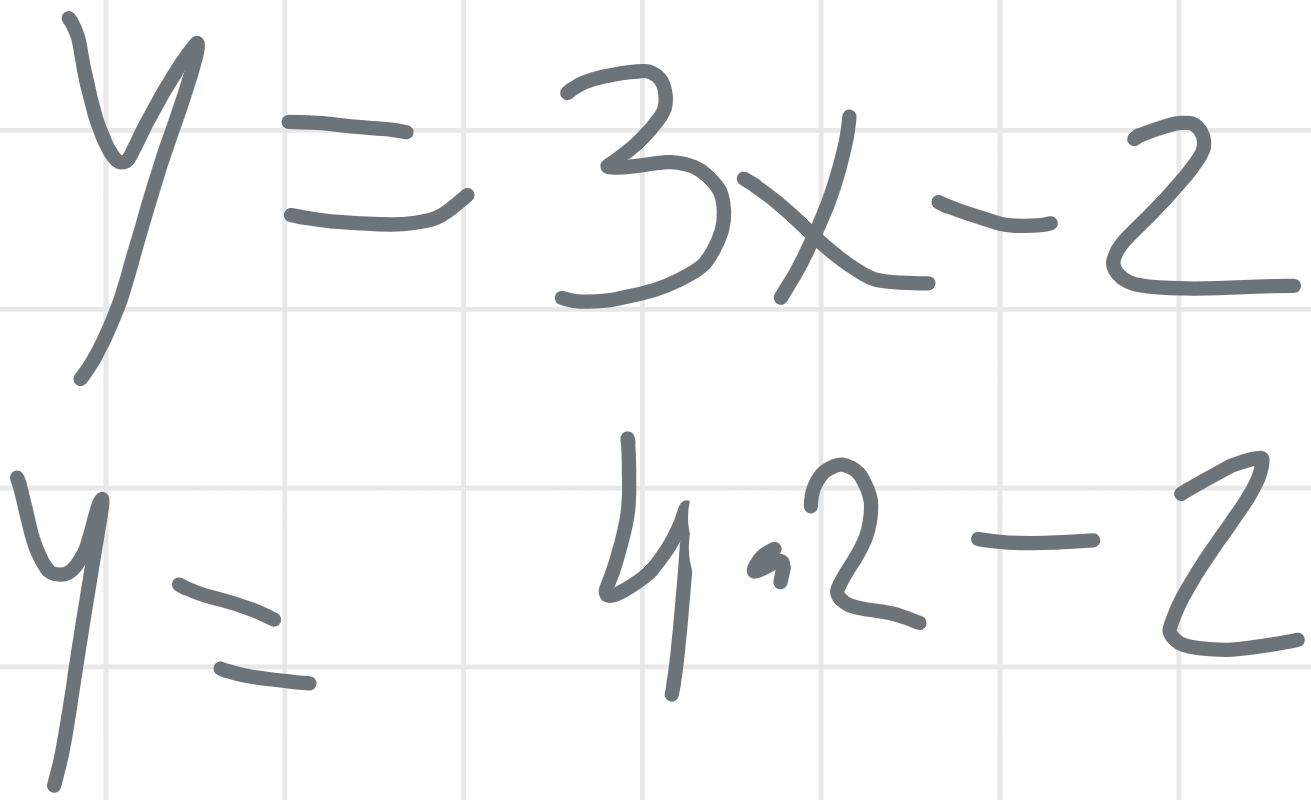 y = 3x - 2
y = 4 · 2 - 2